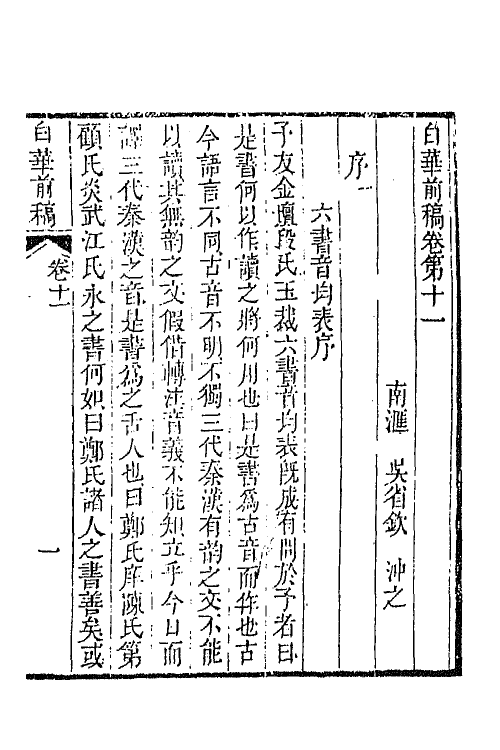 白華前稿卷第十一
南滙　吳省欽　沖之
序一
六書音均表序
予友金壇段氏玉裁六書音均表旣成有問於予者曰
是書何以作讀之將何用也曰是書爲古音而作也古
今語言不同古音不明不獨三代秦漢有韵之文不能
以讀其無韵之文假借轉注音義不能知立乎今日而
譯三代秦漢之音是書爲之舌人也曰鄭氏庠陳氏第
顧氏炎武江氏永之書何如曰鄭氏諸人之書善矣或
白華前稿
卷十一
一